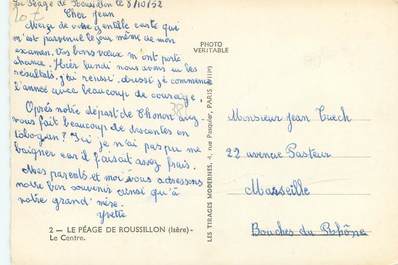 Le Péage de Roussillon le 8/10/52
Cher Jean
Merci de votre gentille carte qui
m'est parvenue le jour même de mon
examen. Vos bons vœux m'ont porté
chance. Hier lundi nous avons eu les
résultats, j'ai réussi, aussi je commence
l'année avec beaucoup de courage.
Après notre départ de Thonon avez
vous fait beaucoup de descentes en
tobogan? Ici je n'ai pas pu me
baigner car il faisait assez frais.
Mes parents et moi vous adressons
notre bon souvenir ainsi qu'à
votre grand'mère.
Yvette
2 - LE PÉAGE DE ROUSSILLON (Isère) -
Le Centre.
PHOTO
VERITABLE
LES TIRAGES MODERNES, 4, rue Pasquier, PARIS
Monsieur Jean
22 avenue Pasteur
Marseille
Bouches du Rhône